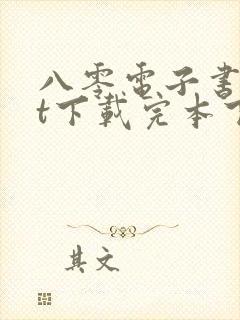 八零電子書
t下載完本
其文